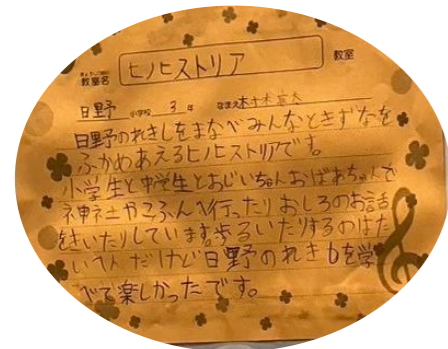 きょうしつめい
教室名 ヒノヒストリア 教室
日野 小学校 3年 なまえ
日野のれきしをまなべみんなときずなを
ふかめあえるヒノヒストリアです。
小学生と中学生とおじいちゃんおばあちゃんで
神社やこふんへ行ったりおしろのお話
をきいたりしています。歩るいたりするのはた
いへんだけど日野のれきしを学
べて楽しかったです。